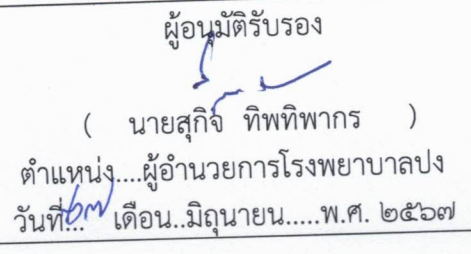 ผู้อนุมัติรับรอง
( นายสุกิจ ทิพทิพากร )
ตำแหน่ง....ผู้อำนวยการโรงพยาบาลปง
วันที่... เดือน..มิถุนายน.....พ.ศ. ๒๕๖๗